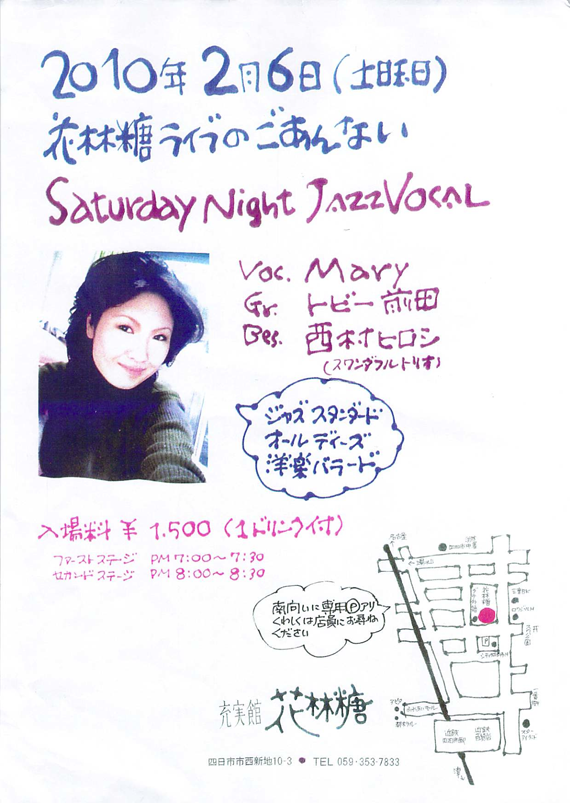 2010年 2月6日(土曜日)
花林糖ライブのごあんない
Saturday Night JAZZ VOCAL
Voc. Mary
Gr. トビー前田
Bes. 西村ヒロシ
(スワンダフルトリオ)
ジャズ スタンダード
オールディーズ
洋楽バラード
入場料 ¥ 1.500 (1ドリンク付)
ファーストステージ PM 7:00〜7:30
セカンドステージ PM 8:00〜8:30
南向いに専用Ⓟアリ
くわしくは店員にお尋ね
ください
名古屋
花林糖
P
充実館 花林糖
四日市市西新地10-3 ● TEL 059-353-7833